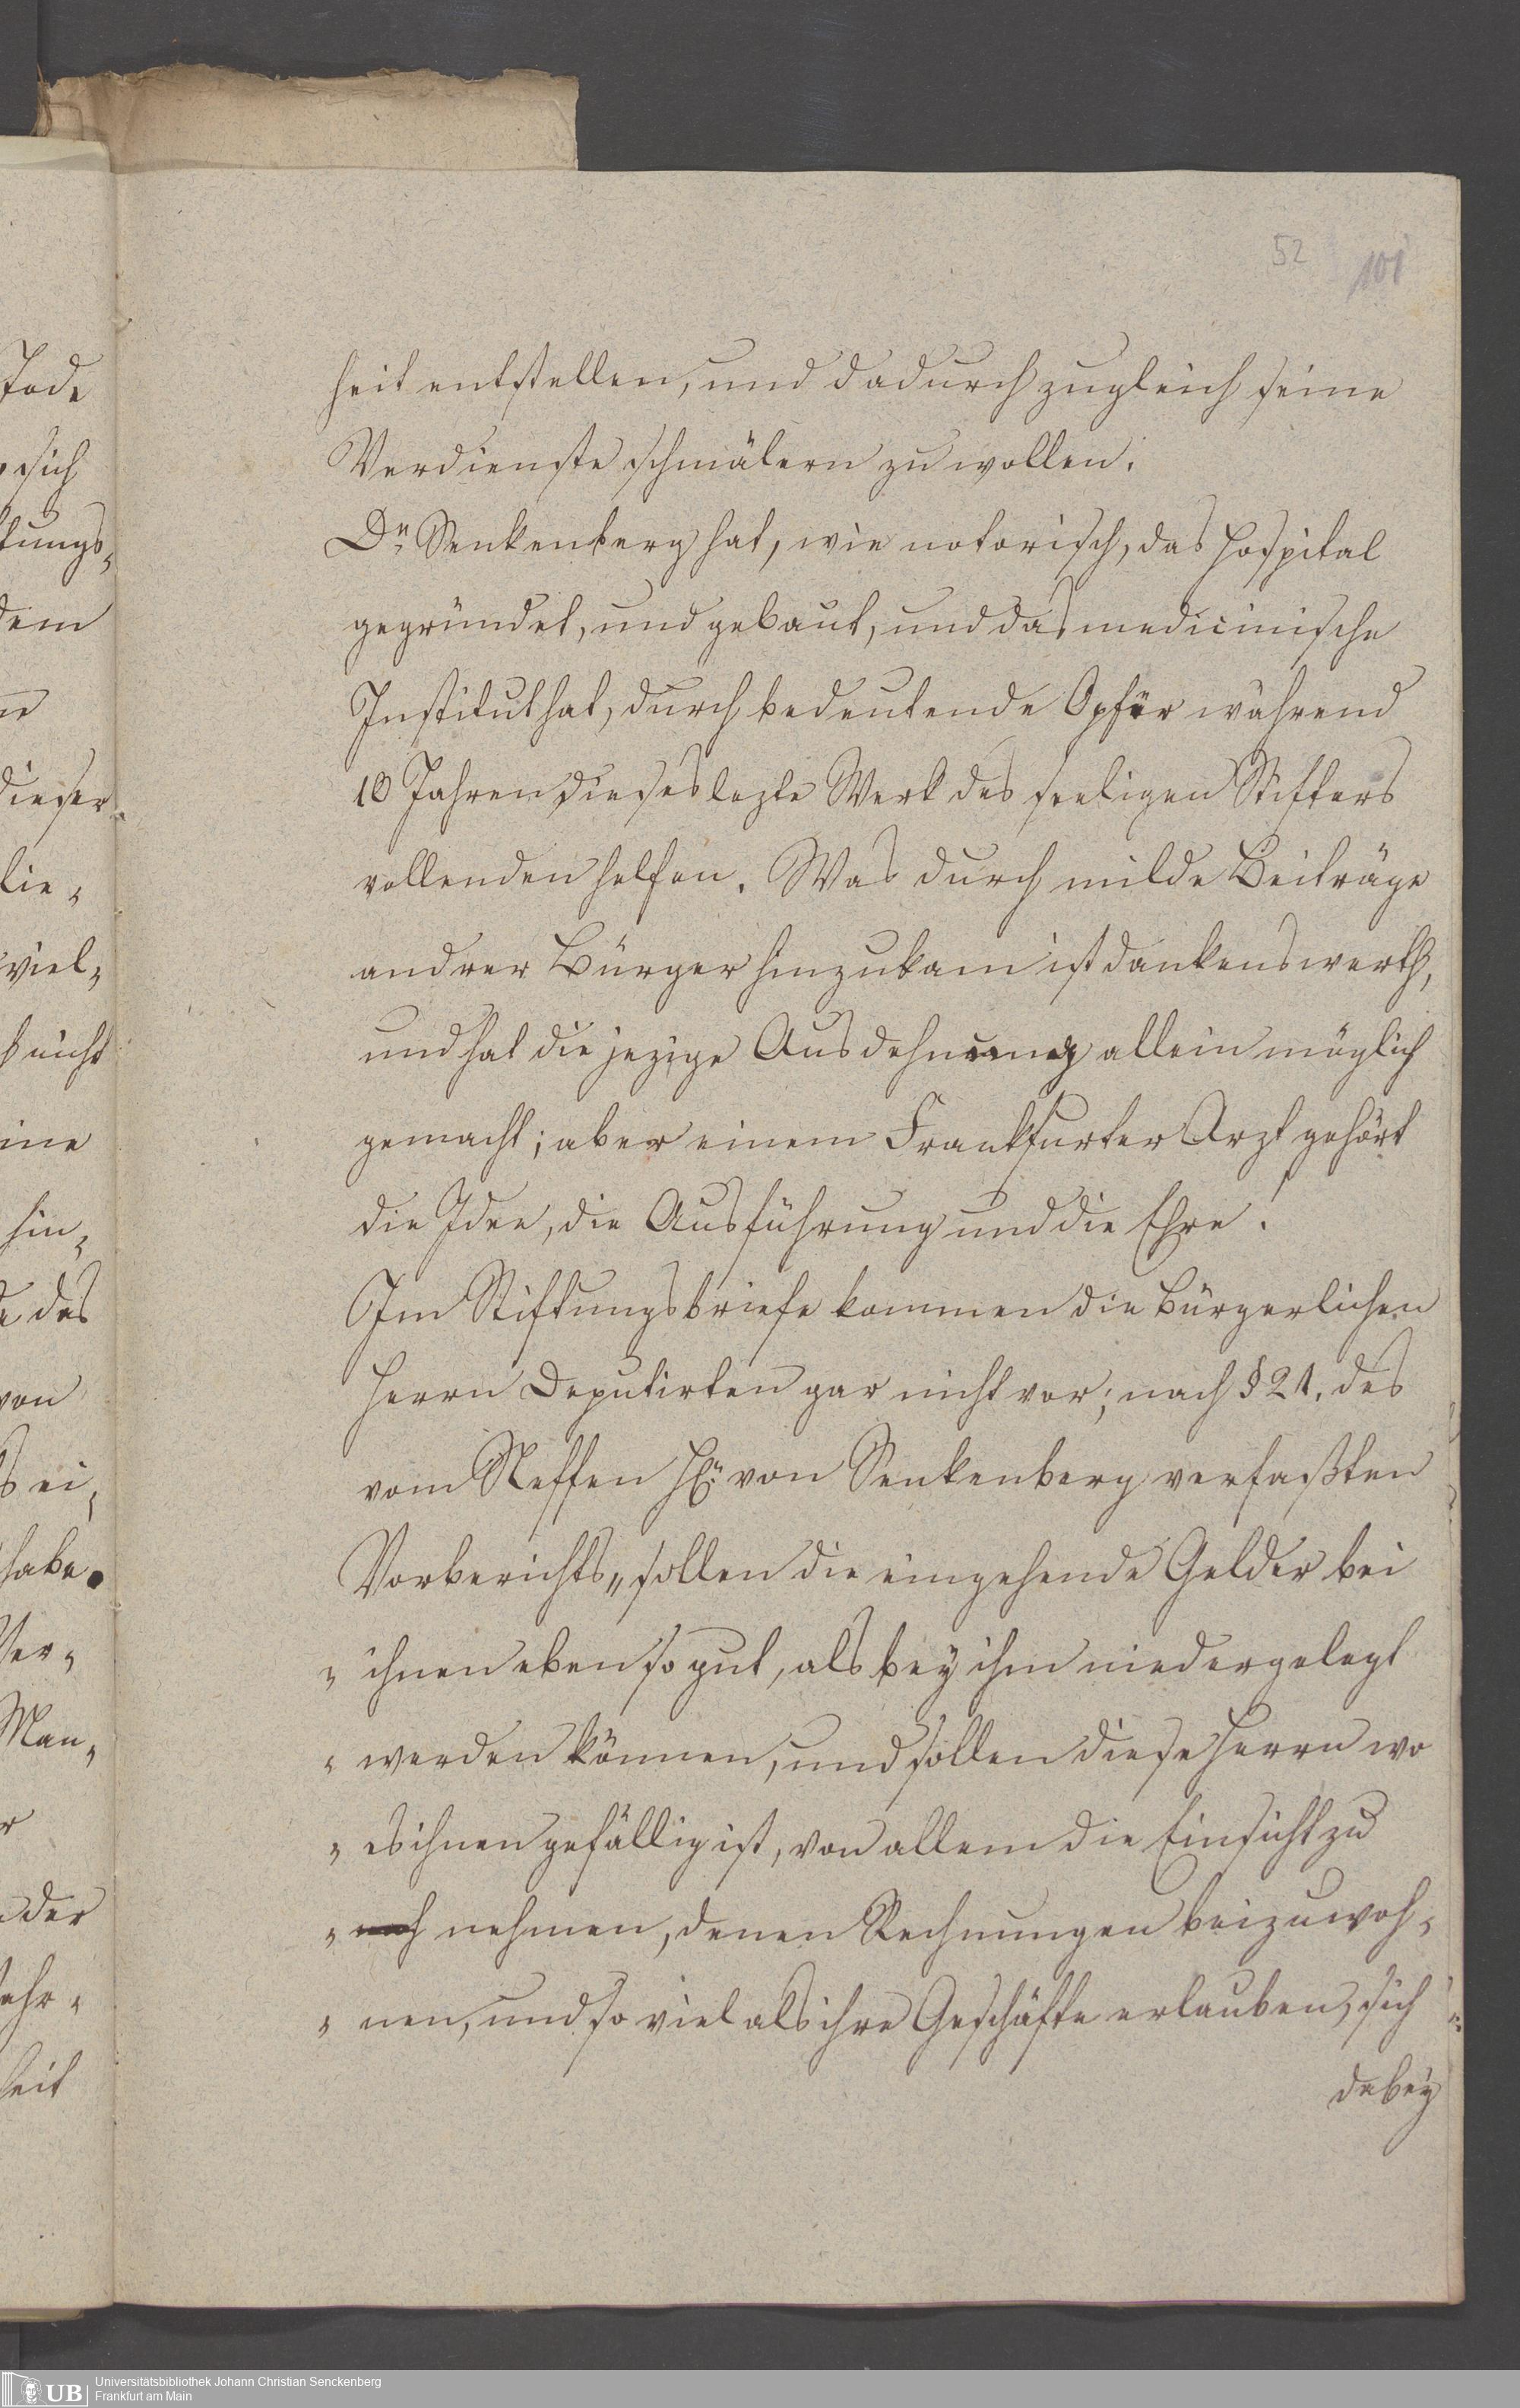 52 101
heit entstellen, und dadurch zugleich seine
Verdienste schmälern zu wollen.
Dr Senkenberg hat, wie notorisch, das Hospital
gegründet, und gebaut, und das medicinische
Institut hat, durch bedeutende Opfer während
10 Jahren dieses lezte Werk des seeligen Stifters
vollenden helfen. Was durch milde Beiträge
andrer Bürger hinzukam ist dankenswerth,
und hat die jezige Ausdehnung allein möglich
gemacht; aber einem Frankfurter Arzt gehört
die Idee, die Ausführung und die Ehre!
Im Stiftungsbriefe kommen die bürgerlichen
Herrn Deputirten gar nicht vor; nach § 21. des
vom Neffen H: von Senkenberg verfaßten
Vorberichts „sollen die eingehende Gelder bei
„ ihnen eben so gut, als bey ihm niedergelegt
„ werden können, und sollen diese Herrn wo
„ es ihnen gefällig ist, von allem die Einsicht zu
„ nehmen, denen Rechnungen beizuwoh-
„ nen, und so viel als ihre Geschäfte erlauben, sich
dabey
Tode
sich
tungs-
dem
dieser
lie-
viel-
nicht
eine
hin-
des
von
ei-
habe.
Ver-
Man-
der
ehr-
heit
UB
Universitätsbibliothek Johann Christian Senckenberg
Frankfurt am Main